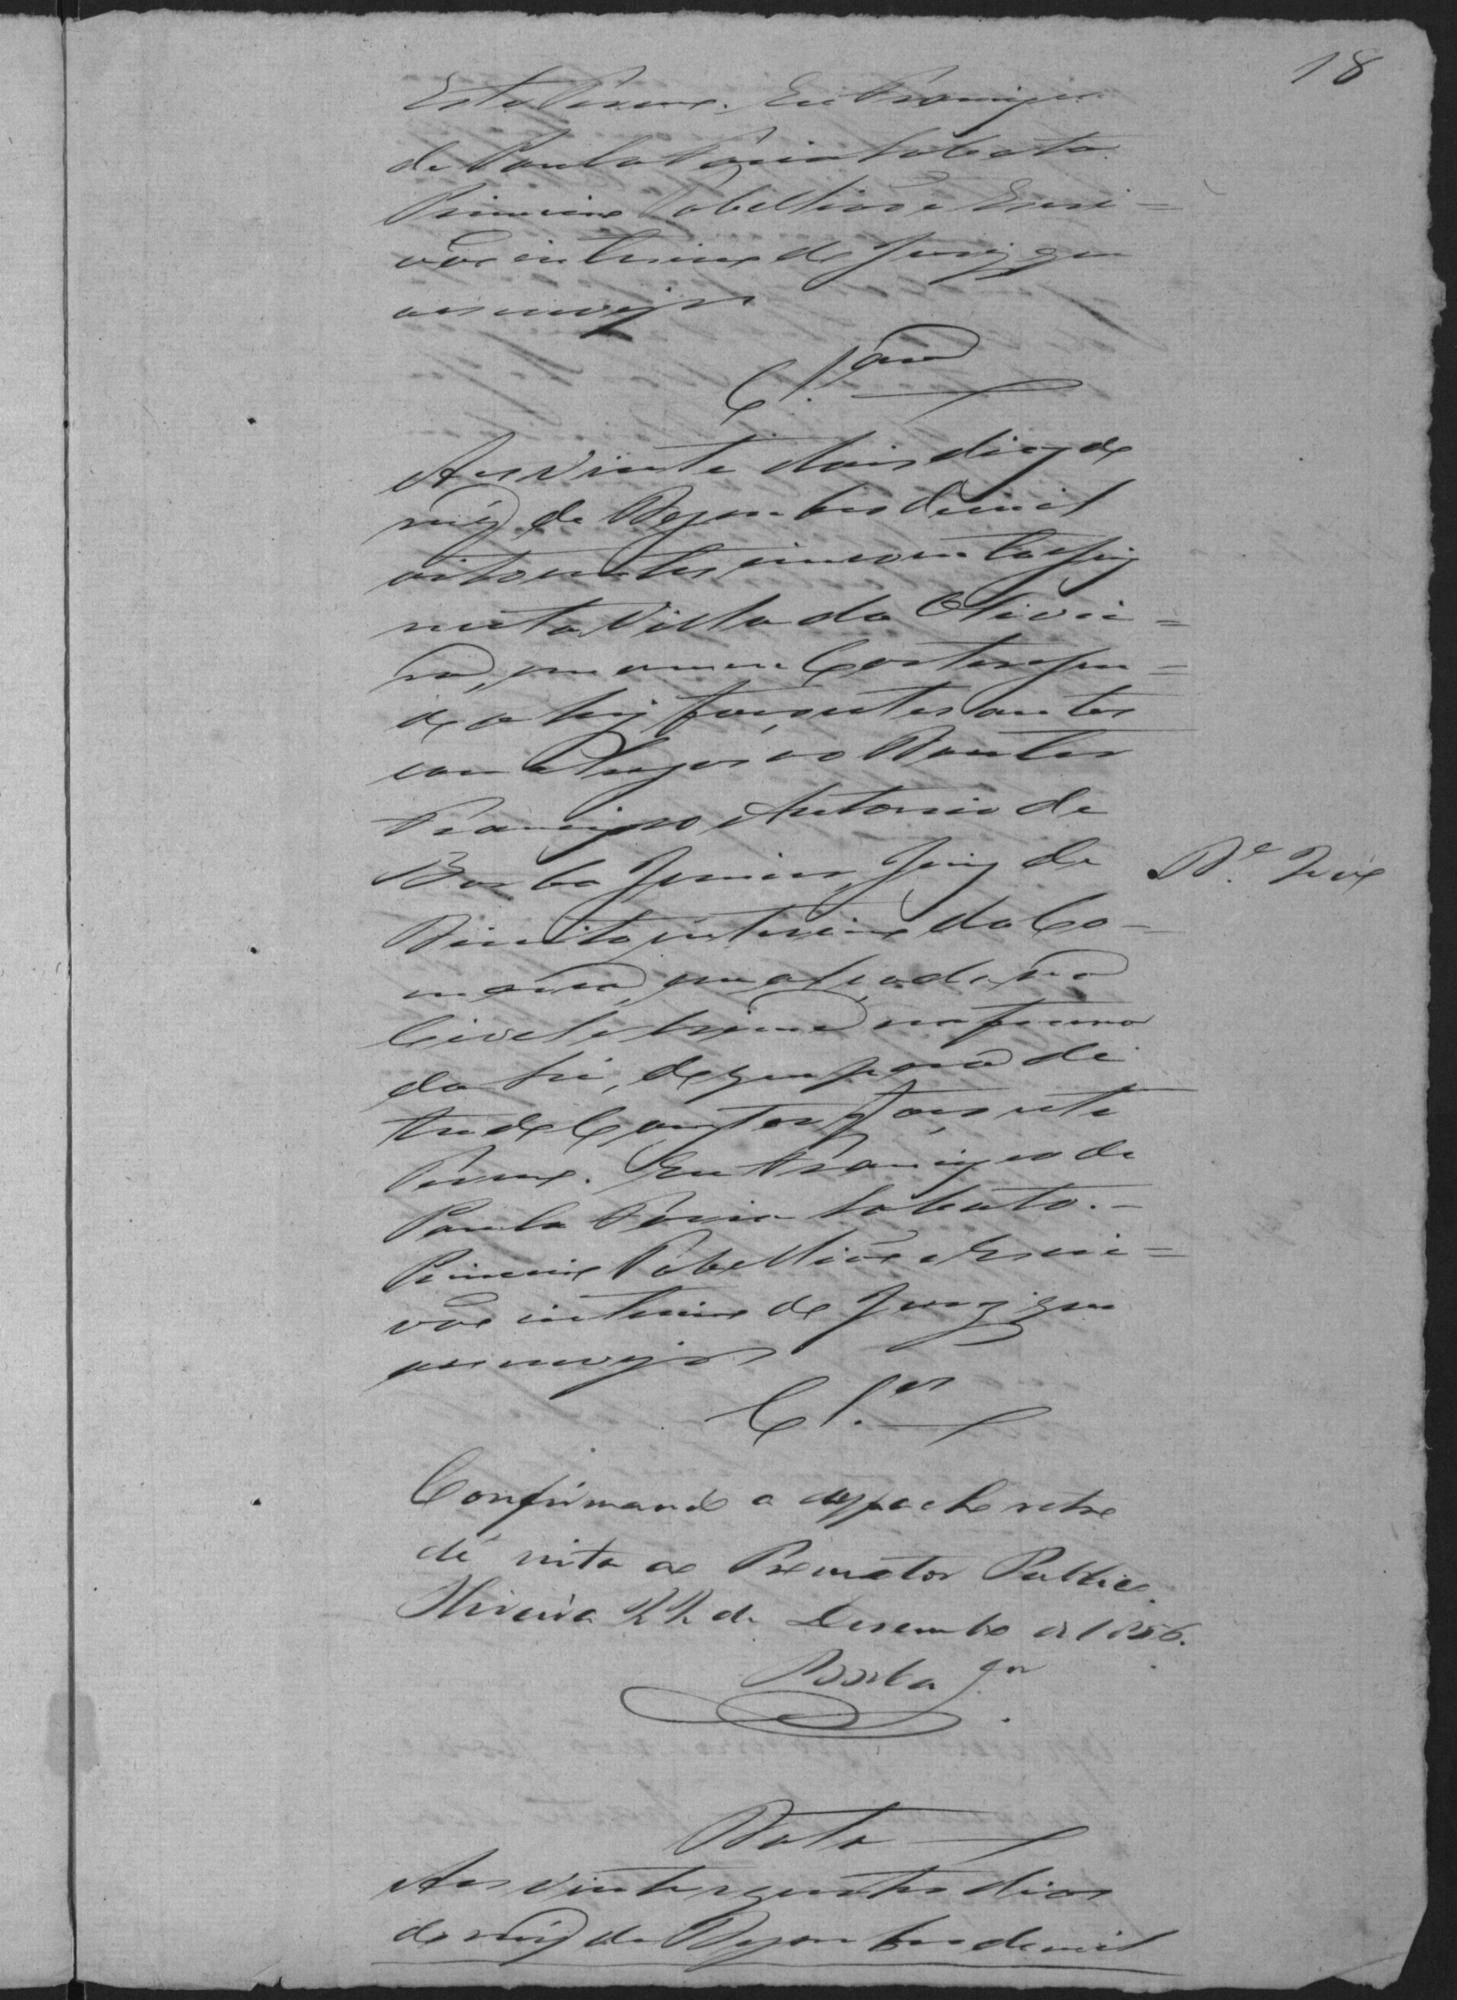 18
este termo. Eu Francisco
de Paula Faria Lobato.
Primeiro Tabellião e Escri=
vão interino do Jury que
escrevi
Cl.
Aos vinte dois dias do
mes de Dezembro de mil
oito centos cincoenta e seis
nesta Villa da Olivei=
ra, em meu Cartorio, sen=
do ahi faço estes autos
conclusos ao Doutor
Francisco Antonio de
Borba Junior, Juiz de
Direito interino da Co-
marca
Civel e Crime na forma
da Lei, do que para
este
termo. Eu Francisco de
Paula Faria Lobato.-
Primeiro Tabellião e Escri=
vão interino do Jury que
escrevi
Cl.os
Confirmando o despacho retro
dê vista ao Promotor Publico.
Oliveira 22 de Desembro de 1856.
Borba Jor
Data
Aos vinte e quatro dias
do mes de Dezembro de mil